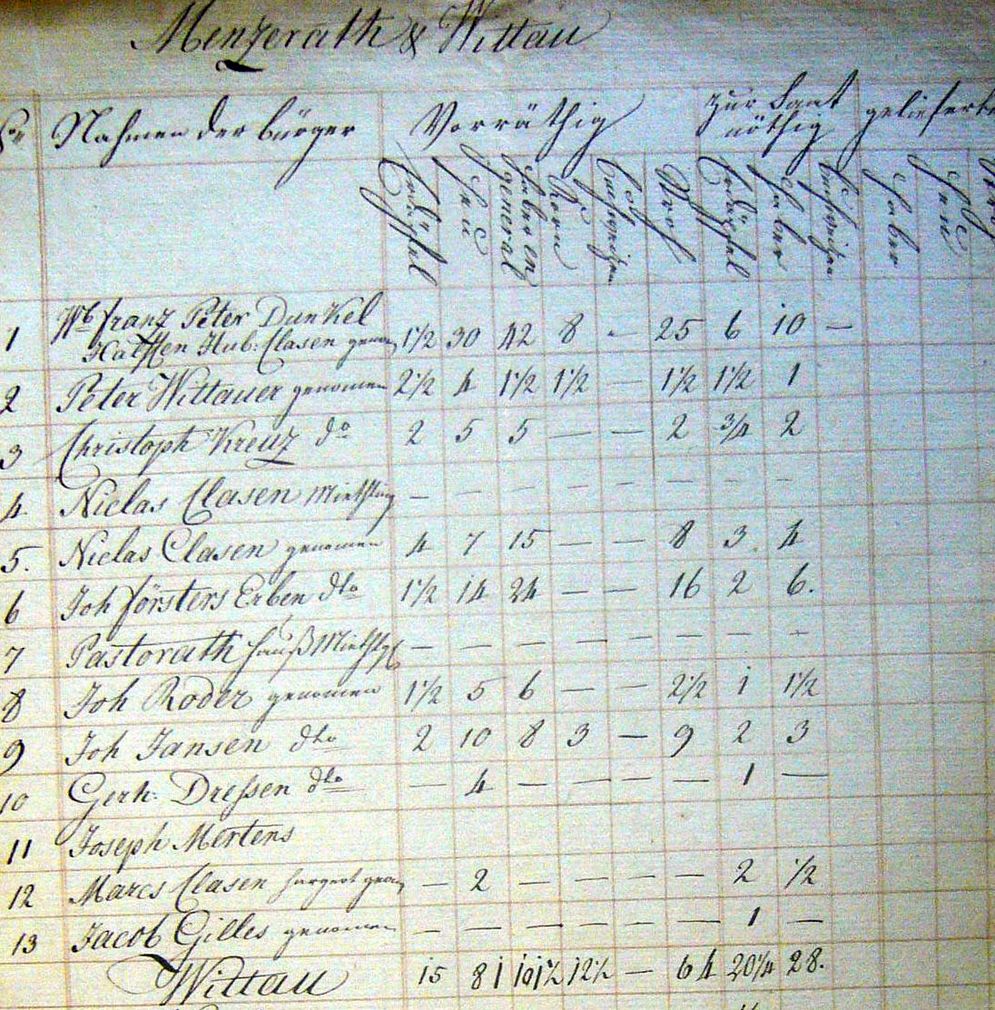 Menzerath & Wittau
Nahmen der bürger Vorräthig zur Saat nöthig geliefert
Erdäpfel Heu Haber en general Korn Erdäpfel Haber Haber Heu
1 Wb franz Peter Dunkel
Halffen Hub: Clasen 1½ 30 42 8 - 25 6 10 —
2 Peter Wittauer genomen 2½ 4 1½ 1½ — 1½ 1½ 1
3 Christoph Kreuz do 2 5 5 — — 2 ¾ 2
4. Niclas Clasen Miethling — — — — — — — —
5. Niclas Clasen genomen 4 7 15 — — 8 3 4
6 Joh försters Erben dto 1½ 14 24 — — 16 2 6.
7 Pastorath hauß — — — — — — — —
8 Joh Roder genomen 1½ 5 6 — — 2½ 1 1½
9 Joh Jansen dto 2 10 8 3 — 9 2 3
10 Gerh. Dreßen dto — 4 — — — — 1 —
11 Joseph Mertens
12 Marcs Clasen — 2 — — — — 2 ½
13 Jacob Gilles genomen — — — — — — 1 —
Wittau 15 81 101½ 12½ — 64 20¼ 28.